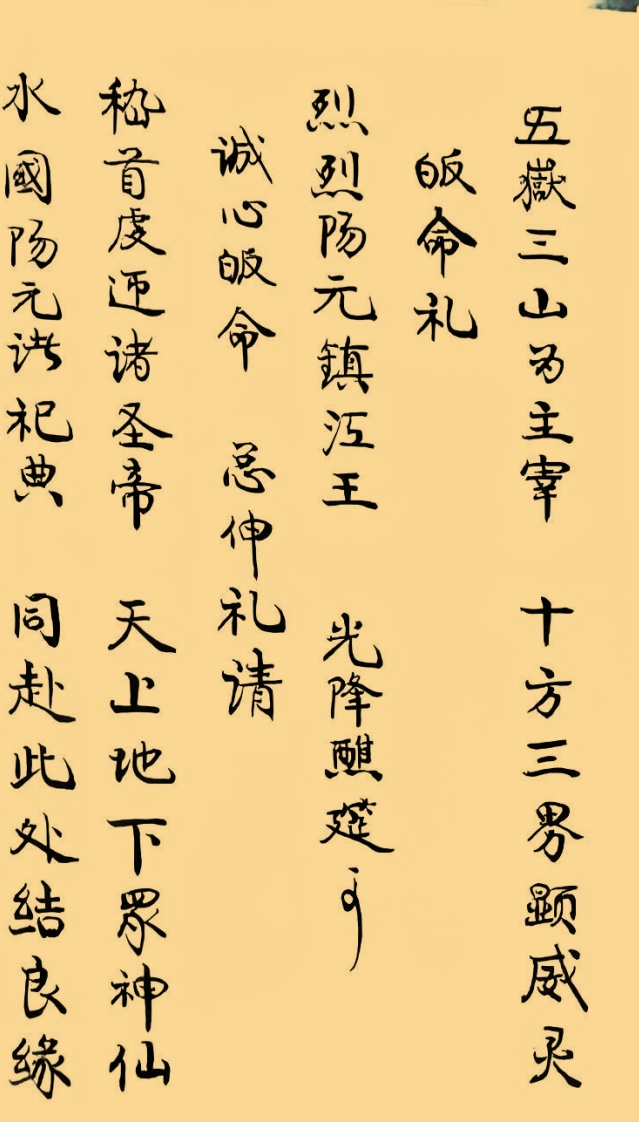 五嶽三山为主宰 十方三界顕威灵
皈命礼
烈烈阳元鎮江王 光降醮筵
诚心皈命 总伸礼请
稽首虔迎诸圣帝 天上地下眾神仙
水國阳元诸祀典 同赴此处结良缘